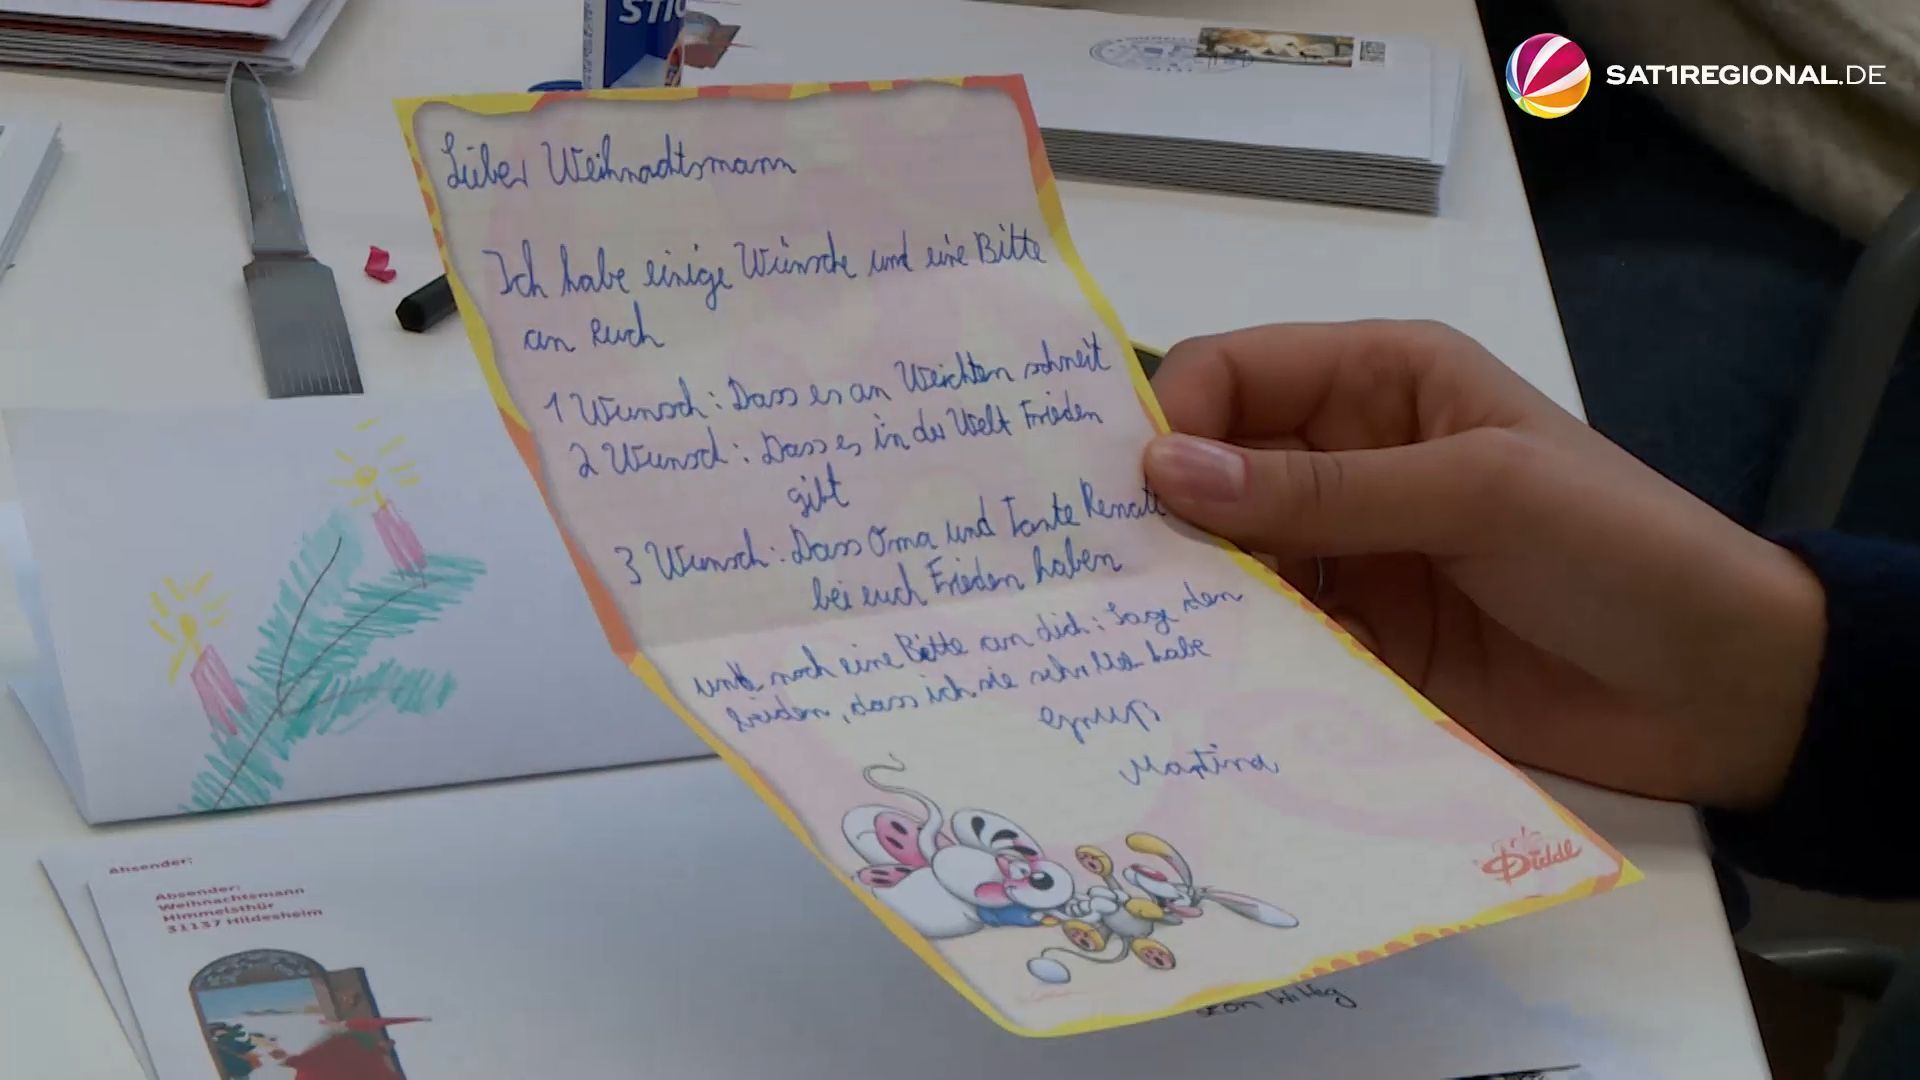 STI
SAT1REGIONAL.DE
Lieber Weihnachtsmann
Ich habe einige Wünsche und eine Bitte
an euch
1 Wunsch: Dass es an Weichten schneit
2 Wunsch: Dass es in der Welt Frieden
gibt
3 Wunsch: Dass Oma und Tante Renate
bei euch Frieden haben
und noch eine Bitte an dich: Sage den
beiden, dass ich sie sehr lieb habe
Martina
Diddl
Absender:
Absender:
Weihnachtsmann
Himmelsthür
31137 Hildesheim